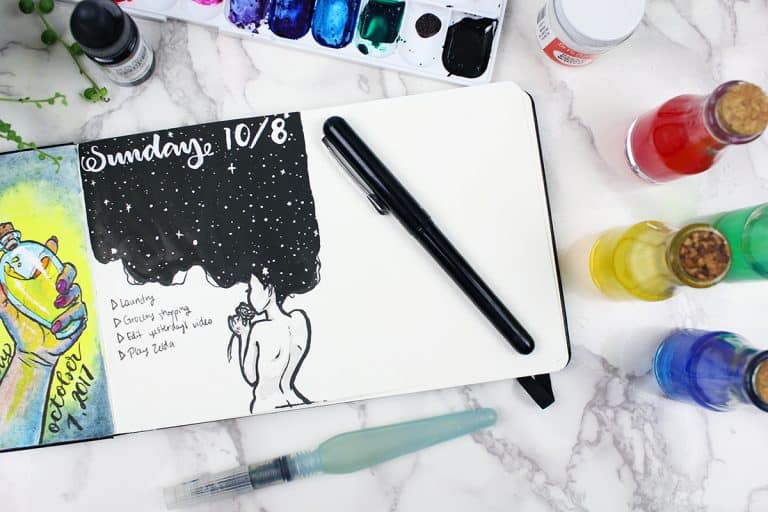 Sunday 10/8
Laundry
Grocery shopping
Edit yesterday's video
Play Zelda
october
7, 2017